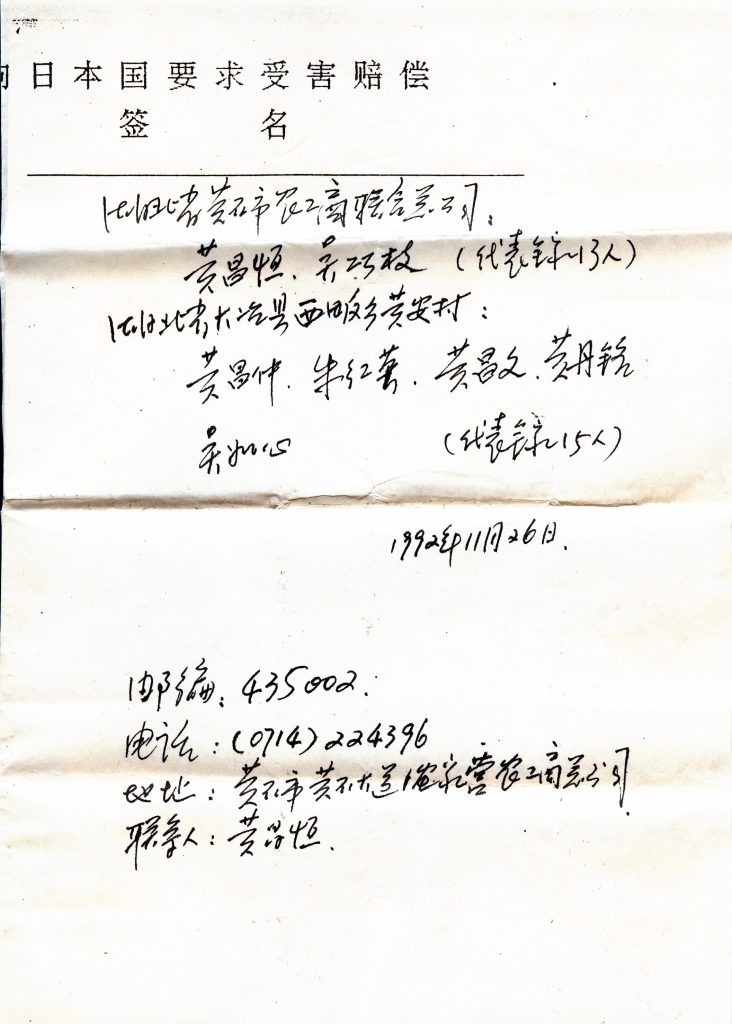 向日本国要求受害赔偿
签 名
湖北省黄石市农工商联合总公司:
黄昌恒、吴巧枝 (代表余13人)
湖北省大冶县西畈乡黄安村:
黄昌仲、朱红英、黄昌文、黄丹铭
吴如心 (代表余15人)
1992年11月26日.
邮编: 435002.
电话: (0714) 224396
地址: 黄石市黄石大道 农工商总公司
联系人: 黄昌恒.